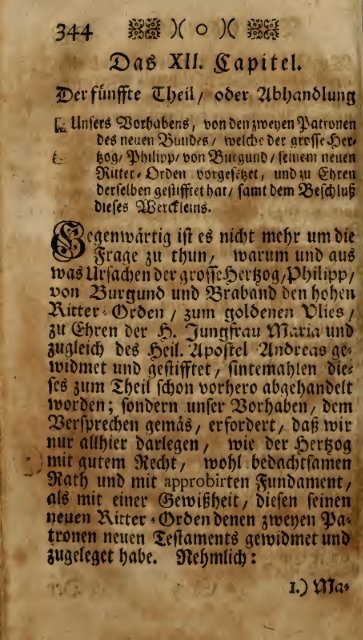 344 )( o )(
Das XII. Capitel.
Der fünffte Theil/ oder Abhandlung
Unsers Vorhabens, von den zweyen Patronen
des neuen Bundes, welche der grosse Her-
tzog/ Philipp/ von Burgund/ seinem neuen
Ritter-Orden vorgesetzet, und zu Ehren
derselben gestifftet hat/ samt dem Beschluß
dieses Werckleins.
Gegenwärtig ist es nicht mehr um die
Frage zu thun, warum und aus
was Ursachen der grosse Hertzog/Philipp/
von Burgund und Braband den hohen
Ritter-Orden/ zum goldenen Vlies/
zu Ehren der H. Jungfrau Maria und
zugleich des Heil. Apostel Andreas ge-
widmet und gestifftet, sintemahlen die-
ses zum Theil schon vorhero abgehandelt
worden; sondern unser Vorhaben, dem
Versprechen gemäs, erfordert, daß wir
nur allhier darlegen, wie der Hertzog
mit gutem Recht, wohl bedachtsamen
Rath und mit approbirten Fundament,
als mit einer Gewißheit, diesen seinen
neuen Ritter-Orden denen zweyen Pa-
tronen neuen Testaments gewidmet und
zugeleget habe. Nehmlich:
1.) Ma-